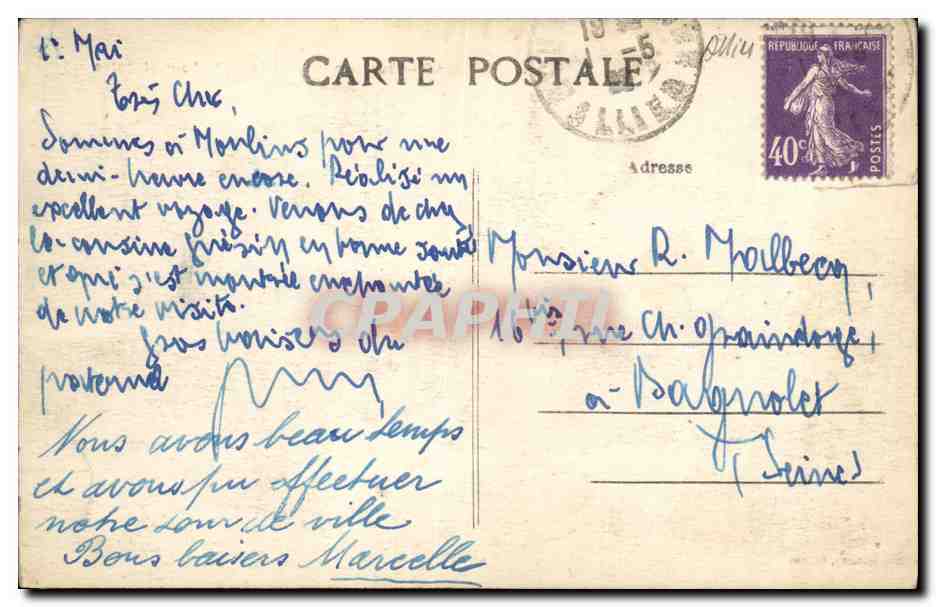 1er Mai
Très Cher,
Sommes à Moulins pour une
demi-heure encore. Réalisé un
excellent voyage. Venons de chez
la cousine en bonne santé
et qui s'est montrée enchantée
de notre visite.
Gros baisers du
paternel
Nous avons beau temps
et avons pu effectuer
notre tour de ville
Bons baisers Marcelle
CARTE POSTALE
19 -5
ALLIER
Allier
REPUBLIQUE FRANÇAISE
40c
POSTES
Adresse
Monsieur R. Malbecq,
16bis, rue Ch. Graindorge,
à Bagnolet
(Seine)
CPAPHIL